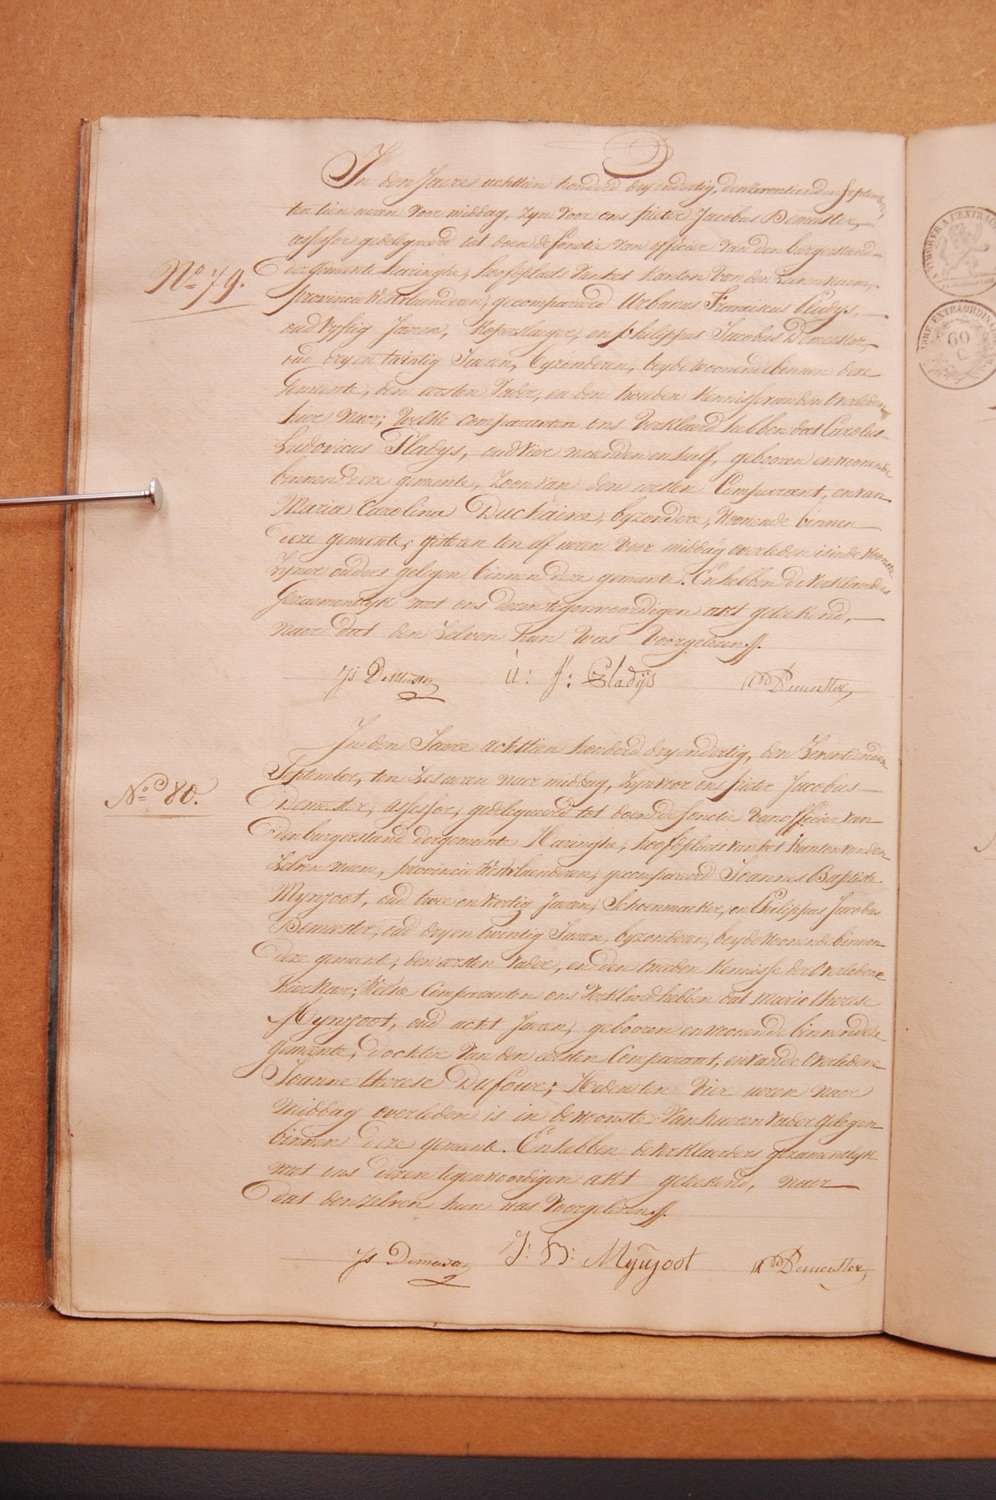 In den Jaere achttien honderd dry en dertig, den seventienden september
ten tien uren voor middag, zyn voor ons Pieter Jacobus Demeester,
assessor gedelegeerd tot doen de fonctie van officier van den burgerstand
der gemeente Haeringhe, hoofdplaets van het kanton van den zelven naem,
No. 79.
provincie Westvlaenderen, gecompareerd Urbanus Franciscus Cladys,
oud vyftig Jaren, Koperslager, en Philippus Jacobus Demeester,
oud dry en twintig Jaren, byzonderen, beyde woonende binnen deze
Gemeente, den eersten Vader, en den tweeden Kennisse van den Overledenen
hier naer; welke comparanten ons Verklaerd hebben dat Carolus
Ludovicus Cladys, oud vier maenden en half, geboren en woonende
binnen deze gemeente, zoon van den eersten Comparant, en van
Maria Carolina Duchaine, byzondere, woonende binnen
deze gemeente, gisteren ten elf uren voor middag overleden is in de woonste
zyner ouders gelegen binnen deze gemeente. En hebben de Verklaerders
Gezaementlyk met ons dezen tegenwoordigen akt geteekend,
naer dat den Zelven hun was Voorgelezen.
Js Demeester U: F: Cladÿs PJ Demeester
In den Jaere achttien honderd dry en dertig, den Zeventienden
No. 80.
September, ten zes uren naer middag, zyn voor ons Pieter Jacobus
Demeester, assessor, gedelegueerd tot doen de fonctie van officier van
den burgerstand der gemeente Haeringhe, hoofdplaets van het Kanton van den
Zelven naem, provincie Westvlaenderen, gecompareerd Joannes Baptiste
Mynjoot, oud twee en veertig Jaren, Schoenmaeker, en Philippus Jacobus
Demeester, oud dry en twintig Jaren, byzonderen, beyde woonende binnen
deze gemeente, den eersten Vader, en den tweeden Kennisse der Overledene
hier naer; Welke Comparanten ons Verklaerd hebben dat Marie Therese
Mynjoot, oud acht Jaren, geboren en woonende binnen deze
gemeente, dochter van den eersten Comparant, en van de Overledene
Joanne Therese Dufour; Heden ten Vier uren naer
Middag overleden is in de woonste van haeren vader gelegen
binnen deze gemeente. En hebben de Verklaerders gezamentlyk
met ons dezen tegenwoordigen akt geteekend, naer
dat den zelven hun was Voorgelezen.
Js Demeester J: B: Mÿnjoot PJ Demeester
60
C